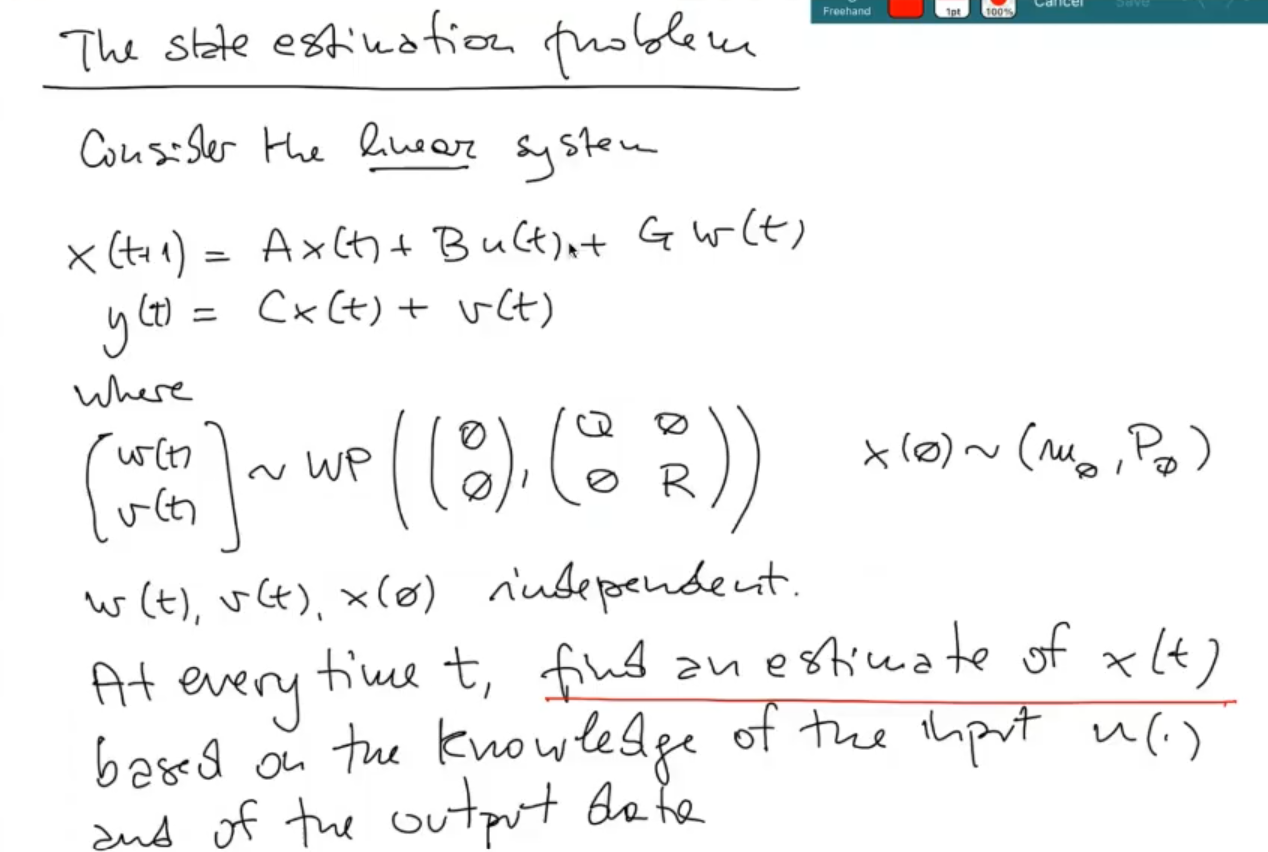 Freehand 1pt 100% Cancel Save
The state estimation problem
Consider the linear system
x(t+1) = Ax(t) + Bu(t) + Gw(t)
y(t) = Cx(t) + v(t)
where
[w(t) v(t)] ~ WP((∅ ∅), (Q ∅ ∅ R)) x(∅) ~ (m∅, P∅)
w(t), v(t), x(∅) independent.
At every time t, find an estimate of x(t)
based on the knowledge of the input u(.)
and of the output data